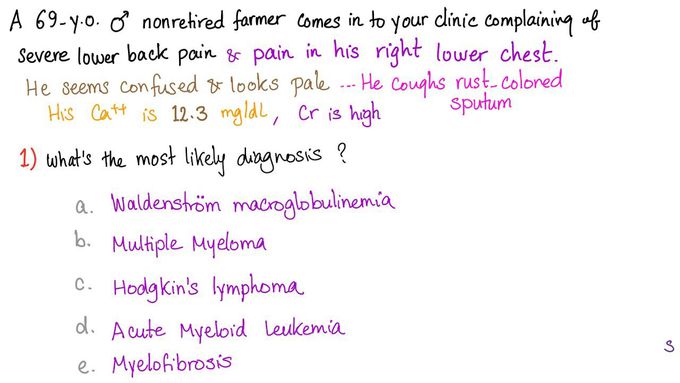 A 69-y.o. ♂ nonretired farmer comes in to your clinic complaining of
severe lower back pain & pain in his right lower chest.
He seems confused & looks pale ... He coughs rust-colored
sputum
His Ca++ is 12.3 mg/dL, Cr is high
1) what's the most likely diagnosis ?
a. Waldenström macroglobulinemia
b. Multiple Myeloma
c. Hodgkin's lymphoma
d. Acute Myeloid Leukemia
e. Myelofibrosis
s